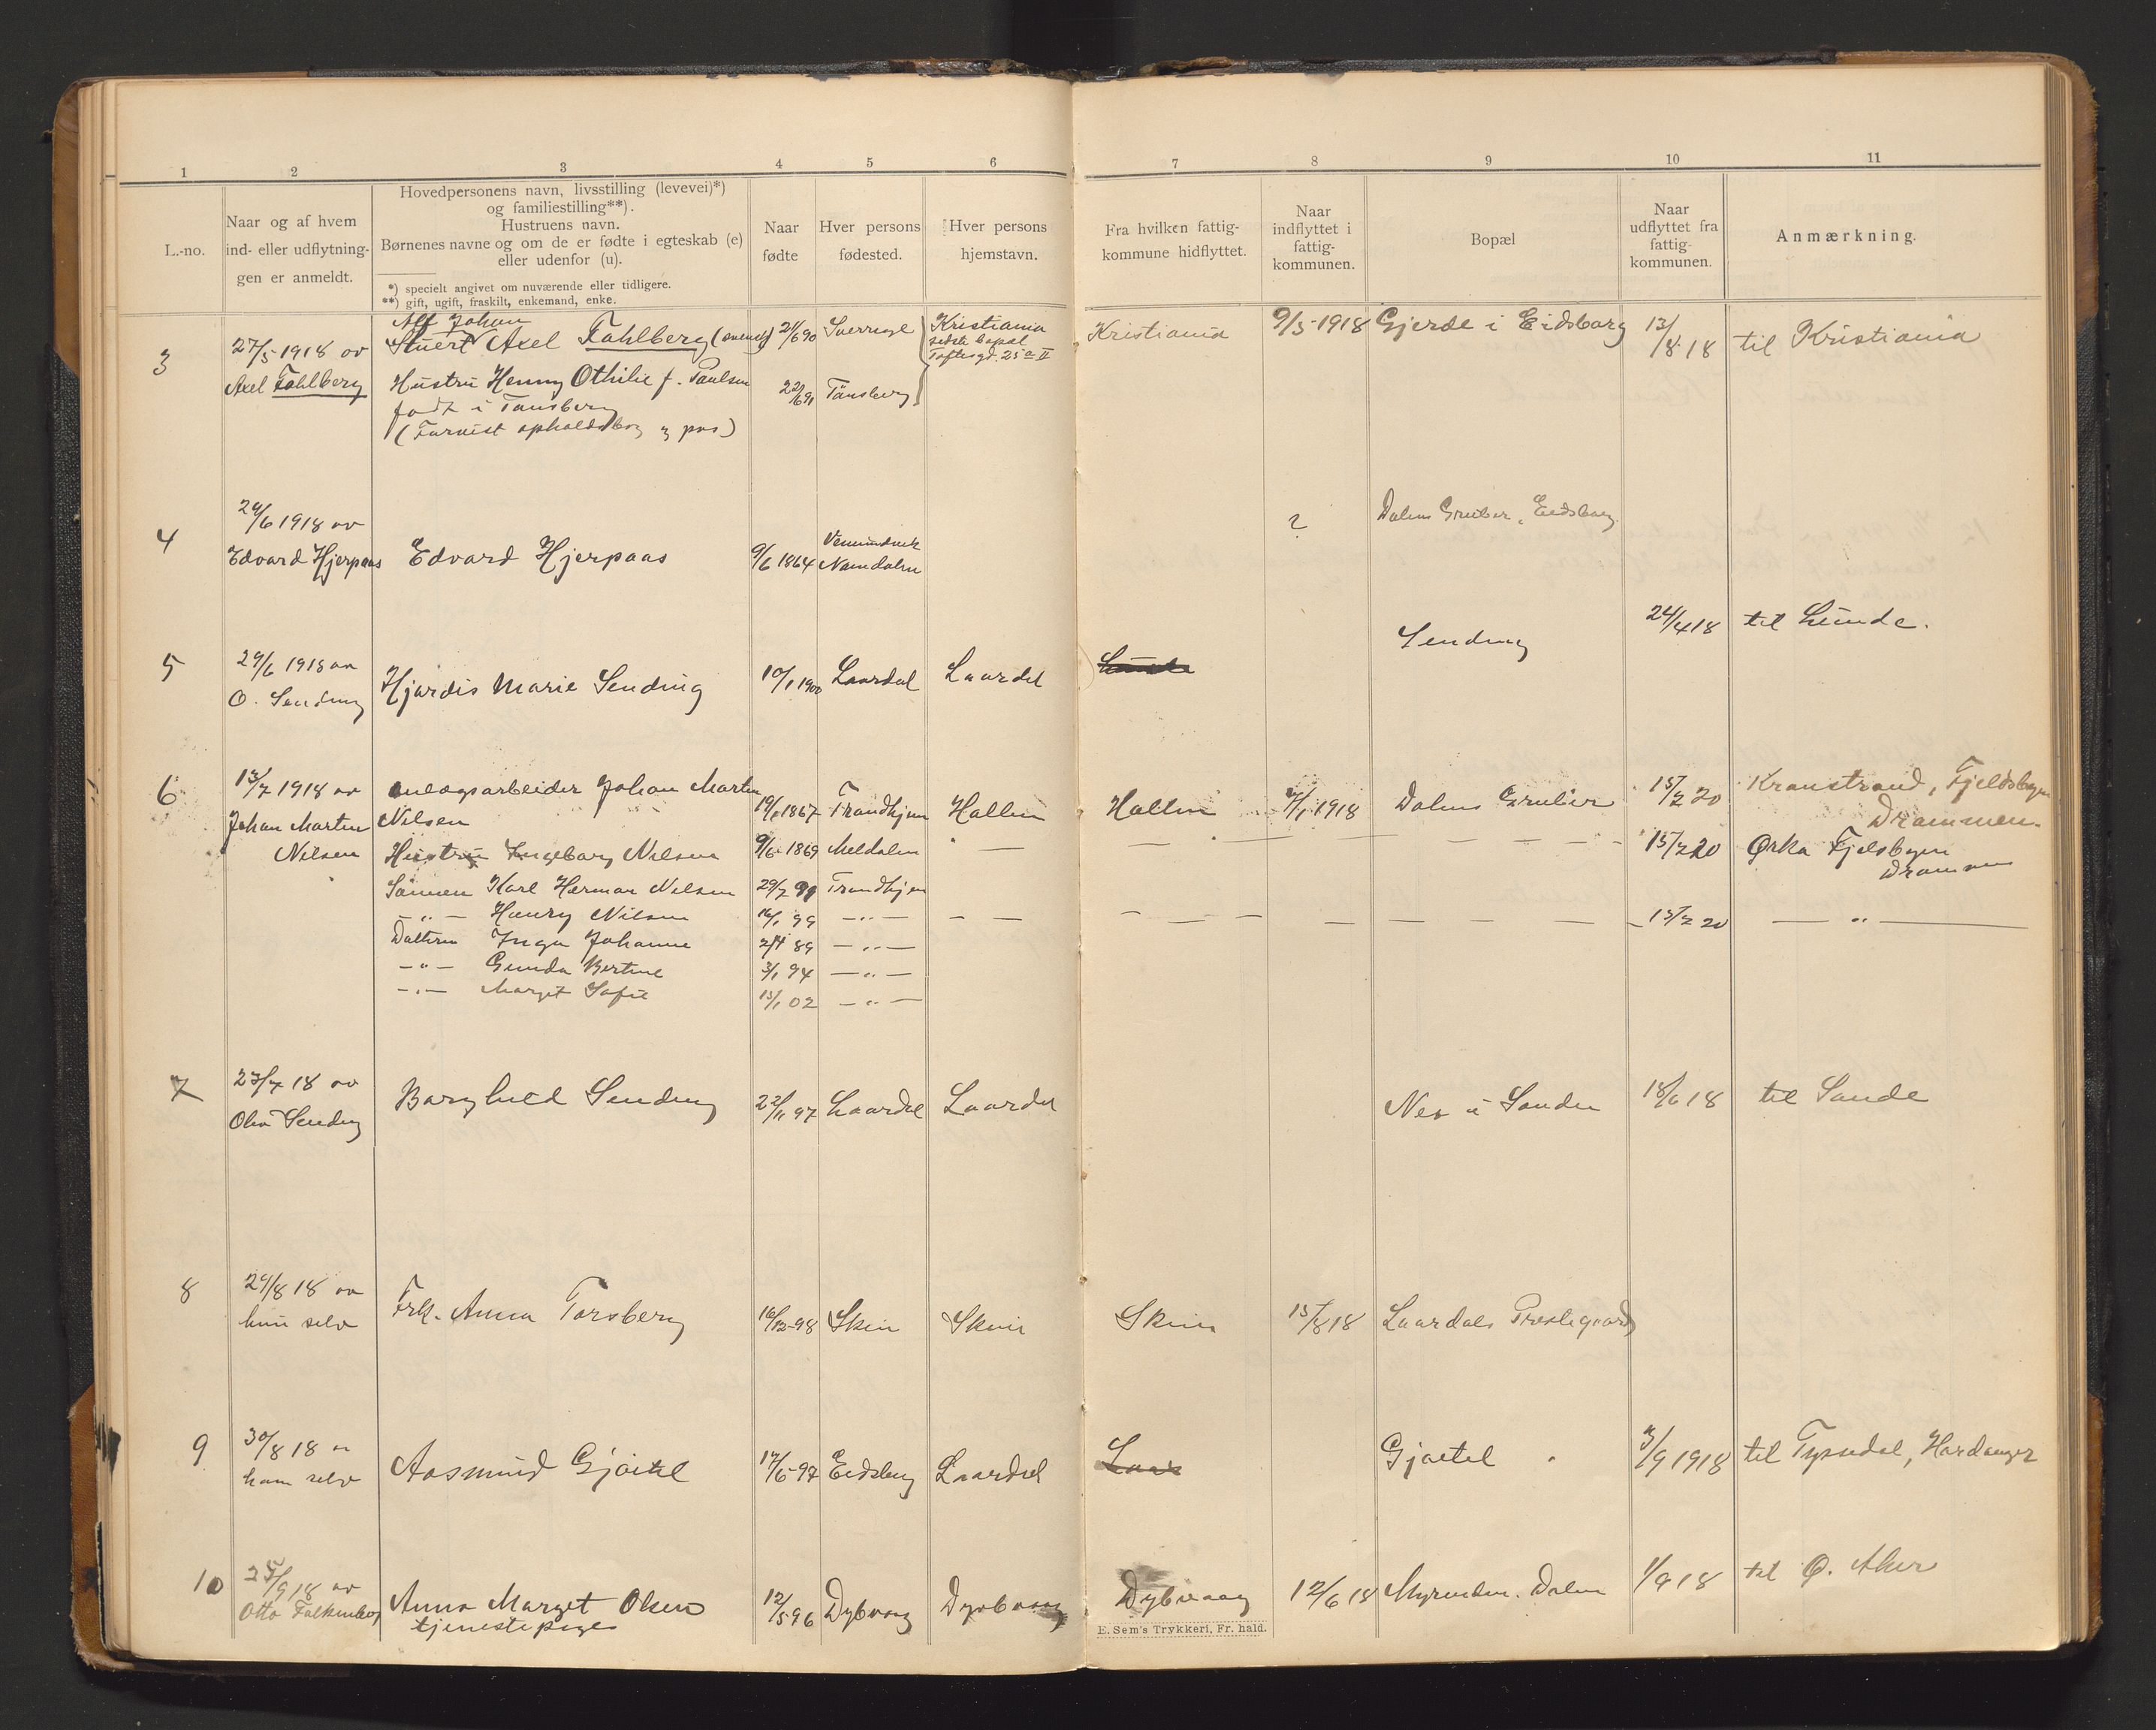 1 2 3 4 5 6 7 8 9 10 11
L.-no.
Naar og af hvem
ind- eller udflytnin-
gen er anmeldt.
Hovedpersonens navn, livsstilling (levevei)*)
og familiestilling**).
Hustruens navn.
Børnenes navne og om de er fødte i egteskab (e)
eller udenfor (u).
*) specielt angivet om nuværende eller tidligere.
**) gift, ugift, fraskilt, enkemand, enke.
Naar
fødte
Hver persons
fødested.
Hver persons
hjemstavn.
Fra hvilken fattig-
kommune hidflyttet.
Naar
indflyttet i
fattig-
kommunen.
Bopæl
Naar
udflyttet fra
fattig-
kommunen.
Anmærkning.
3
27/5 1918 av
Axel Fahlberg
Alf Johan
Axel Fahlberg (svensk)
Hustru Henny Othilie f. Paulsen
født i Tønsberg
(Forvist opholdsbog og pas)
21/6 90 Sverrige
22/6 91 Tønsberg
Kristiania
sidste bopæl
Toftesgd. 25 a II
Kristiania
9/5-1918
Gjerde i Eidsborg
13/8 18
til Kristiania
4
29/6 1918 av
Edvard Hjerpaas
Edvard Hjerpaas
9/6 1864
Namdalen
?
Dalens Gruber, Eidsborg.
5
29/6 1918 av
O. Sending
Hjørdis Marie Sending
10/1 1900
Laardal
Laardal
Sending
24/4 18
til Lunde.
6
13/7 1918 av
Johan Martin
Nilsen
anlægsarbeider Johan Martin
Nilsen
19/1 1867 Trondhjem Holten
Hustru Ingeborg Nilsen 9/6 1869 Meldalen " —
Sønnen Karl Herman Nilsen 29/7 91 Trondhjem
— " — Henry Nilsen 16/1 99 — " — — —
Datteren Inga Johanne 2/4 89 — " —
— " — Gunda Bertine 3/1 94 — " —
— " — Marget Sofie 13/1 02 — " —
Holten
1918
Dalens Gruber
15/2 20
Kranstrand, Fjeldsbyen
Drammen.
15/2 20
Ørka Fjelsbyen
Drammen
15/2 20 — " —
7
23/7 18 av
Olav Sending
Borghild Sending
22/11 97
Laardal
Laardal
Nes i Sauden
18/6 18
til Sande
8
29/8 18 av
hun selv
Frk. Anna Torsberg
16/12-98
Skien
Skien
Skien
15/8 18
Laardals Prestegaard
9
30/8 18 av
ham selv
Aasmund Gjøitil
17/6-97
Eidsborg
Laardal
Gjøitil
3/9 1918
til Tyssedal, Hardanger
10
25/9 18 av
Otto Falkenberg
Anna Marget Olsen
tjenestepige
12/5 96
Dybvaag
Dybvaag
Dybvaag
12/6 18
Myrenden. Dalen
1/9 18
til Ø. Aker
E. Sem's Trykkeri, Fr. hald.